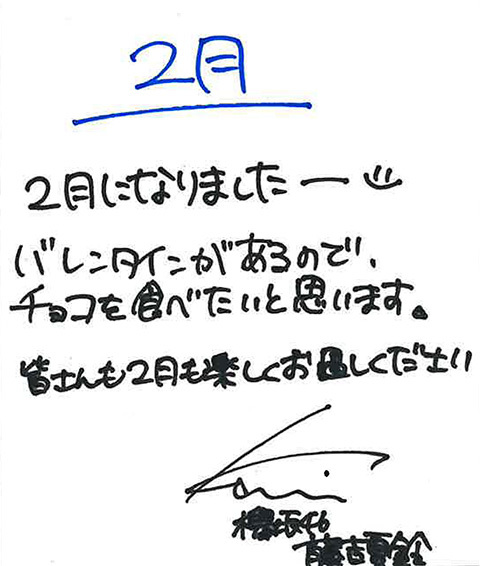 2月
2月になりましたー
バレンタインがあるので、
チョコを食べたいと思います。
皆さんも2月も楽しくお過しください
Karin
櫻坂46
藤吉夏鈴